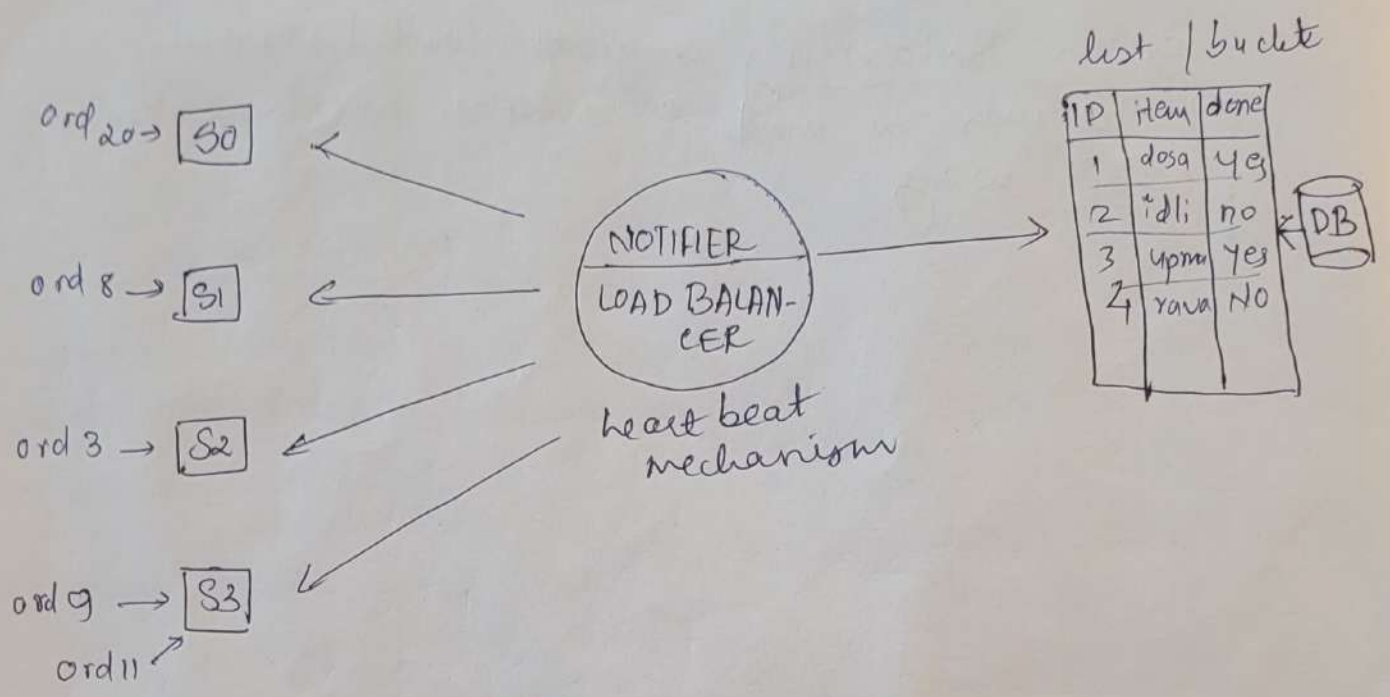 list / buckte
ord 20 → S0
ord 8 → S1
ord 3 → S2
ord 9 → S3
ord 11
NOTIFIER
LOAD BALAN-
CER
heart beat
mechanism
ID item done
1 dosa yes
2 idli no
3 upma yes
4 rava NO
DB